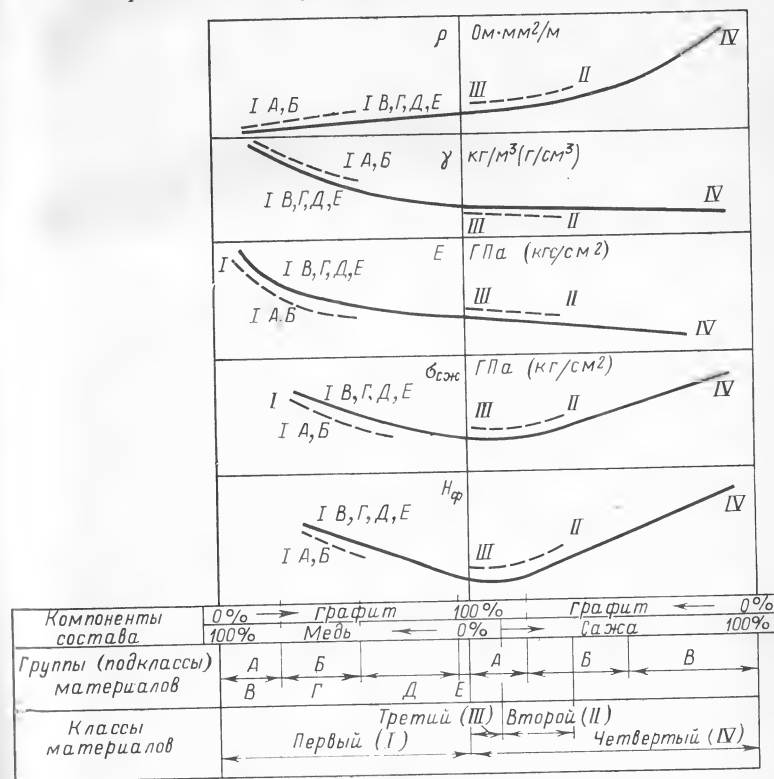 ρ Ом·мм²/м
IV
III II
I А,Б I В,Г,Д,Е
γ кг/м³(г/см³)
I А,Б
I В,Г,Д,Е
IV
III II
E ГПа (кгс/см²)
I I В,Г,Д,Е
I А.Б
III II
IV
σсж ГПа (кг/см²)
I I В,Г,Д,Е
I А,Б
III II
IV
Hф
I В,Г,Д,Е
I А,Б
III II
IV
Компоненты состава
0% → графит 100% графит ← 0%
100% Медь ← 0% → Сажа 100%
Группы (подклассы) материалов
А Б А Б В
В Г Д Е
Классы материалов
Третий (III) Второй (II)
Первый (I) Четвертый (IV)